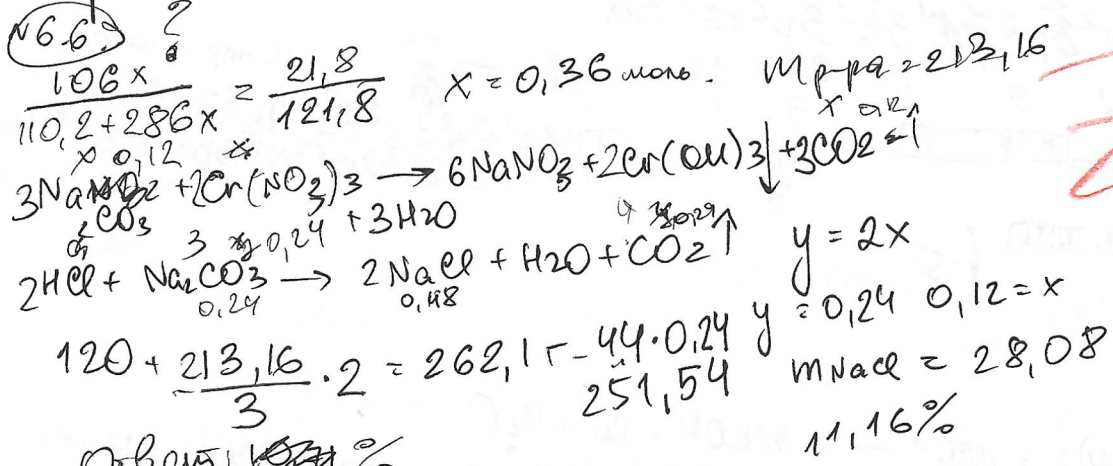 N6.6. ?
106x / 110,2+286x = 21,8 / 121,8   x = 0,36 моль.   m р-ра = 213,16
x 0,12   x 0,12
3Na2CO3 + 2Cr(NO3)3 → 6NaNO3 + 2Cr(OH)3↓ + 3CO2↑
+ 3H2O
y 0,24   y 0,24   y = 2x
2HCl + Na2CO3 → 2NaCl + H2O + CO2↑
0,24   0,48   y = 0,24   0,12 = x
120 + 213,16 / 3 · 2 = 262,1 г - 44·0,24   mNaCl = 28,08
251,54
11,16%
Ответ: %